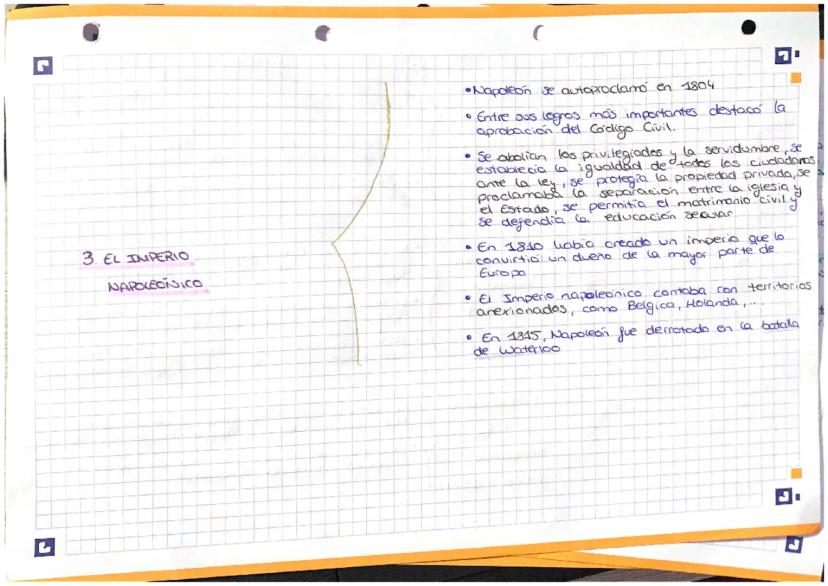 3 EL IMPERIO
NAPOLEÓNICO
•Napoleón se autoproclamó en 1804
•Entre sus logros más importantes destacó la
aprobación del Código Civil.
•Se abolían los privilegiados y la servidumbre, se
establecía la igualdad de todos los ciudadanos
ante la ley, se protegía la propiedad privada, se
proclamaba la separación entre la iglesia y
el Estado, se permitía el matrimonio civil y
se defendía la educación secular
•En 1810 había creado un imperio que lo
convirtió un dueño de la mayor parte de
Europa
•El Imperio napoleónico contaba con territorios
anexionados, como Belgica, Holanda,...
•En 1815, Napoleón fue derrotado en la batalla
de Waterloo